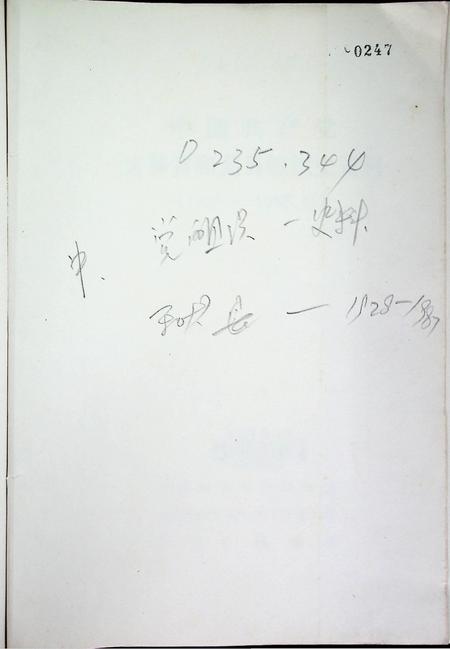 0247
D 235.344
党组织 — 史料
中、
县 — 1928-1987